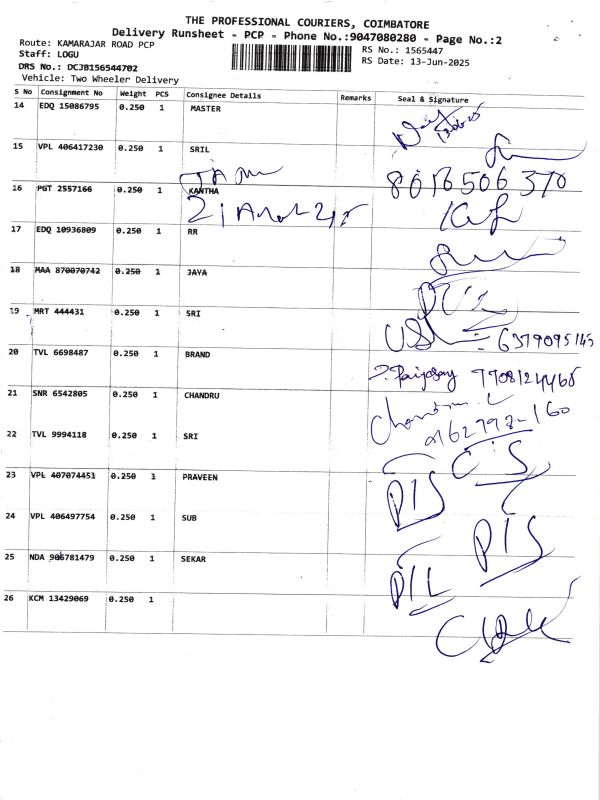 THE PROFESSIONAL COURIERS, COIMBATORE
Delivery Runsheet - PCP - Phone No.:9047080280 - Page No.:2
Route: KAMARAJAR ROAD PCP
RS No.: 1565447
Staff: LOGU
RS Date: 13-Jun-2025
DRS No.: DCJB156544702
Vehicle: Two Wheeler Delivery
S No Consignment No Weight PCS Consignee Details Remarks Seal & Signature
14 EDQ 15086795 0.250 1 MASTER
15 VPL 406417230 0.250 1 SRIL
16 PGT 2557166 0.250 1 KANTHA 8016506370
17 EDQ 10936809 0.250 1 RR
18 MAA 870070742 0.250 1 JAYA
19 MRT 444431 0.250 1 SRI
6379095143
20 TVL 6698487 0.250 1 BRAND
21 SNR 6542805 0.250 1 CHANDRU
22 TVL 9994118 0.250 1 SRI
23 VPL 407074451 0.250 1 PRAVEEN
24 VPL 406497754 0.250 1 SUB
25 NDA 906781479 0.250 1 SEKAR
26 KCM 13429069 0.250 1